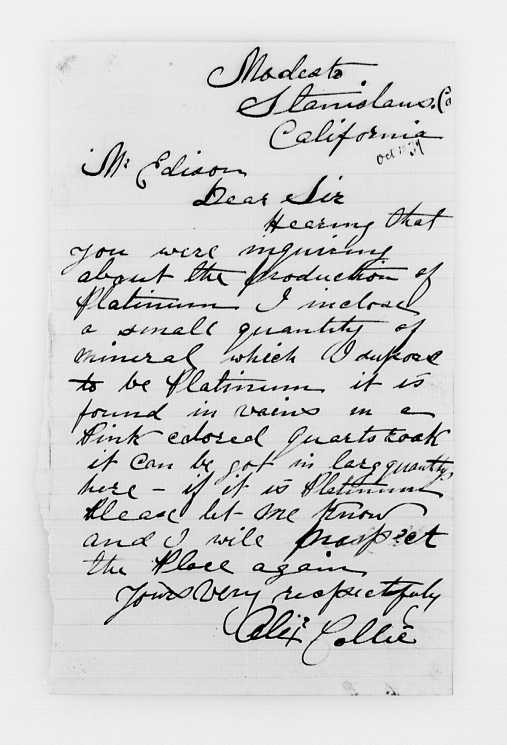 Modesto
Stanislaus, Co
California
Oct 79
Mr Edison
Dear Sir
Hearing that
you were inquiring
about the production of
Platinum I inclose
a small quantity of
mineral which I supose
to be Platinum it is
found in vains in a
Pink colored quarts roak
it can be got in larg quantity
here - if it is Platinum
Please let me know
and I will prospect
the Place again
yours very respectfuly
Collie